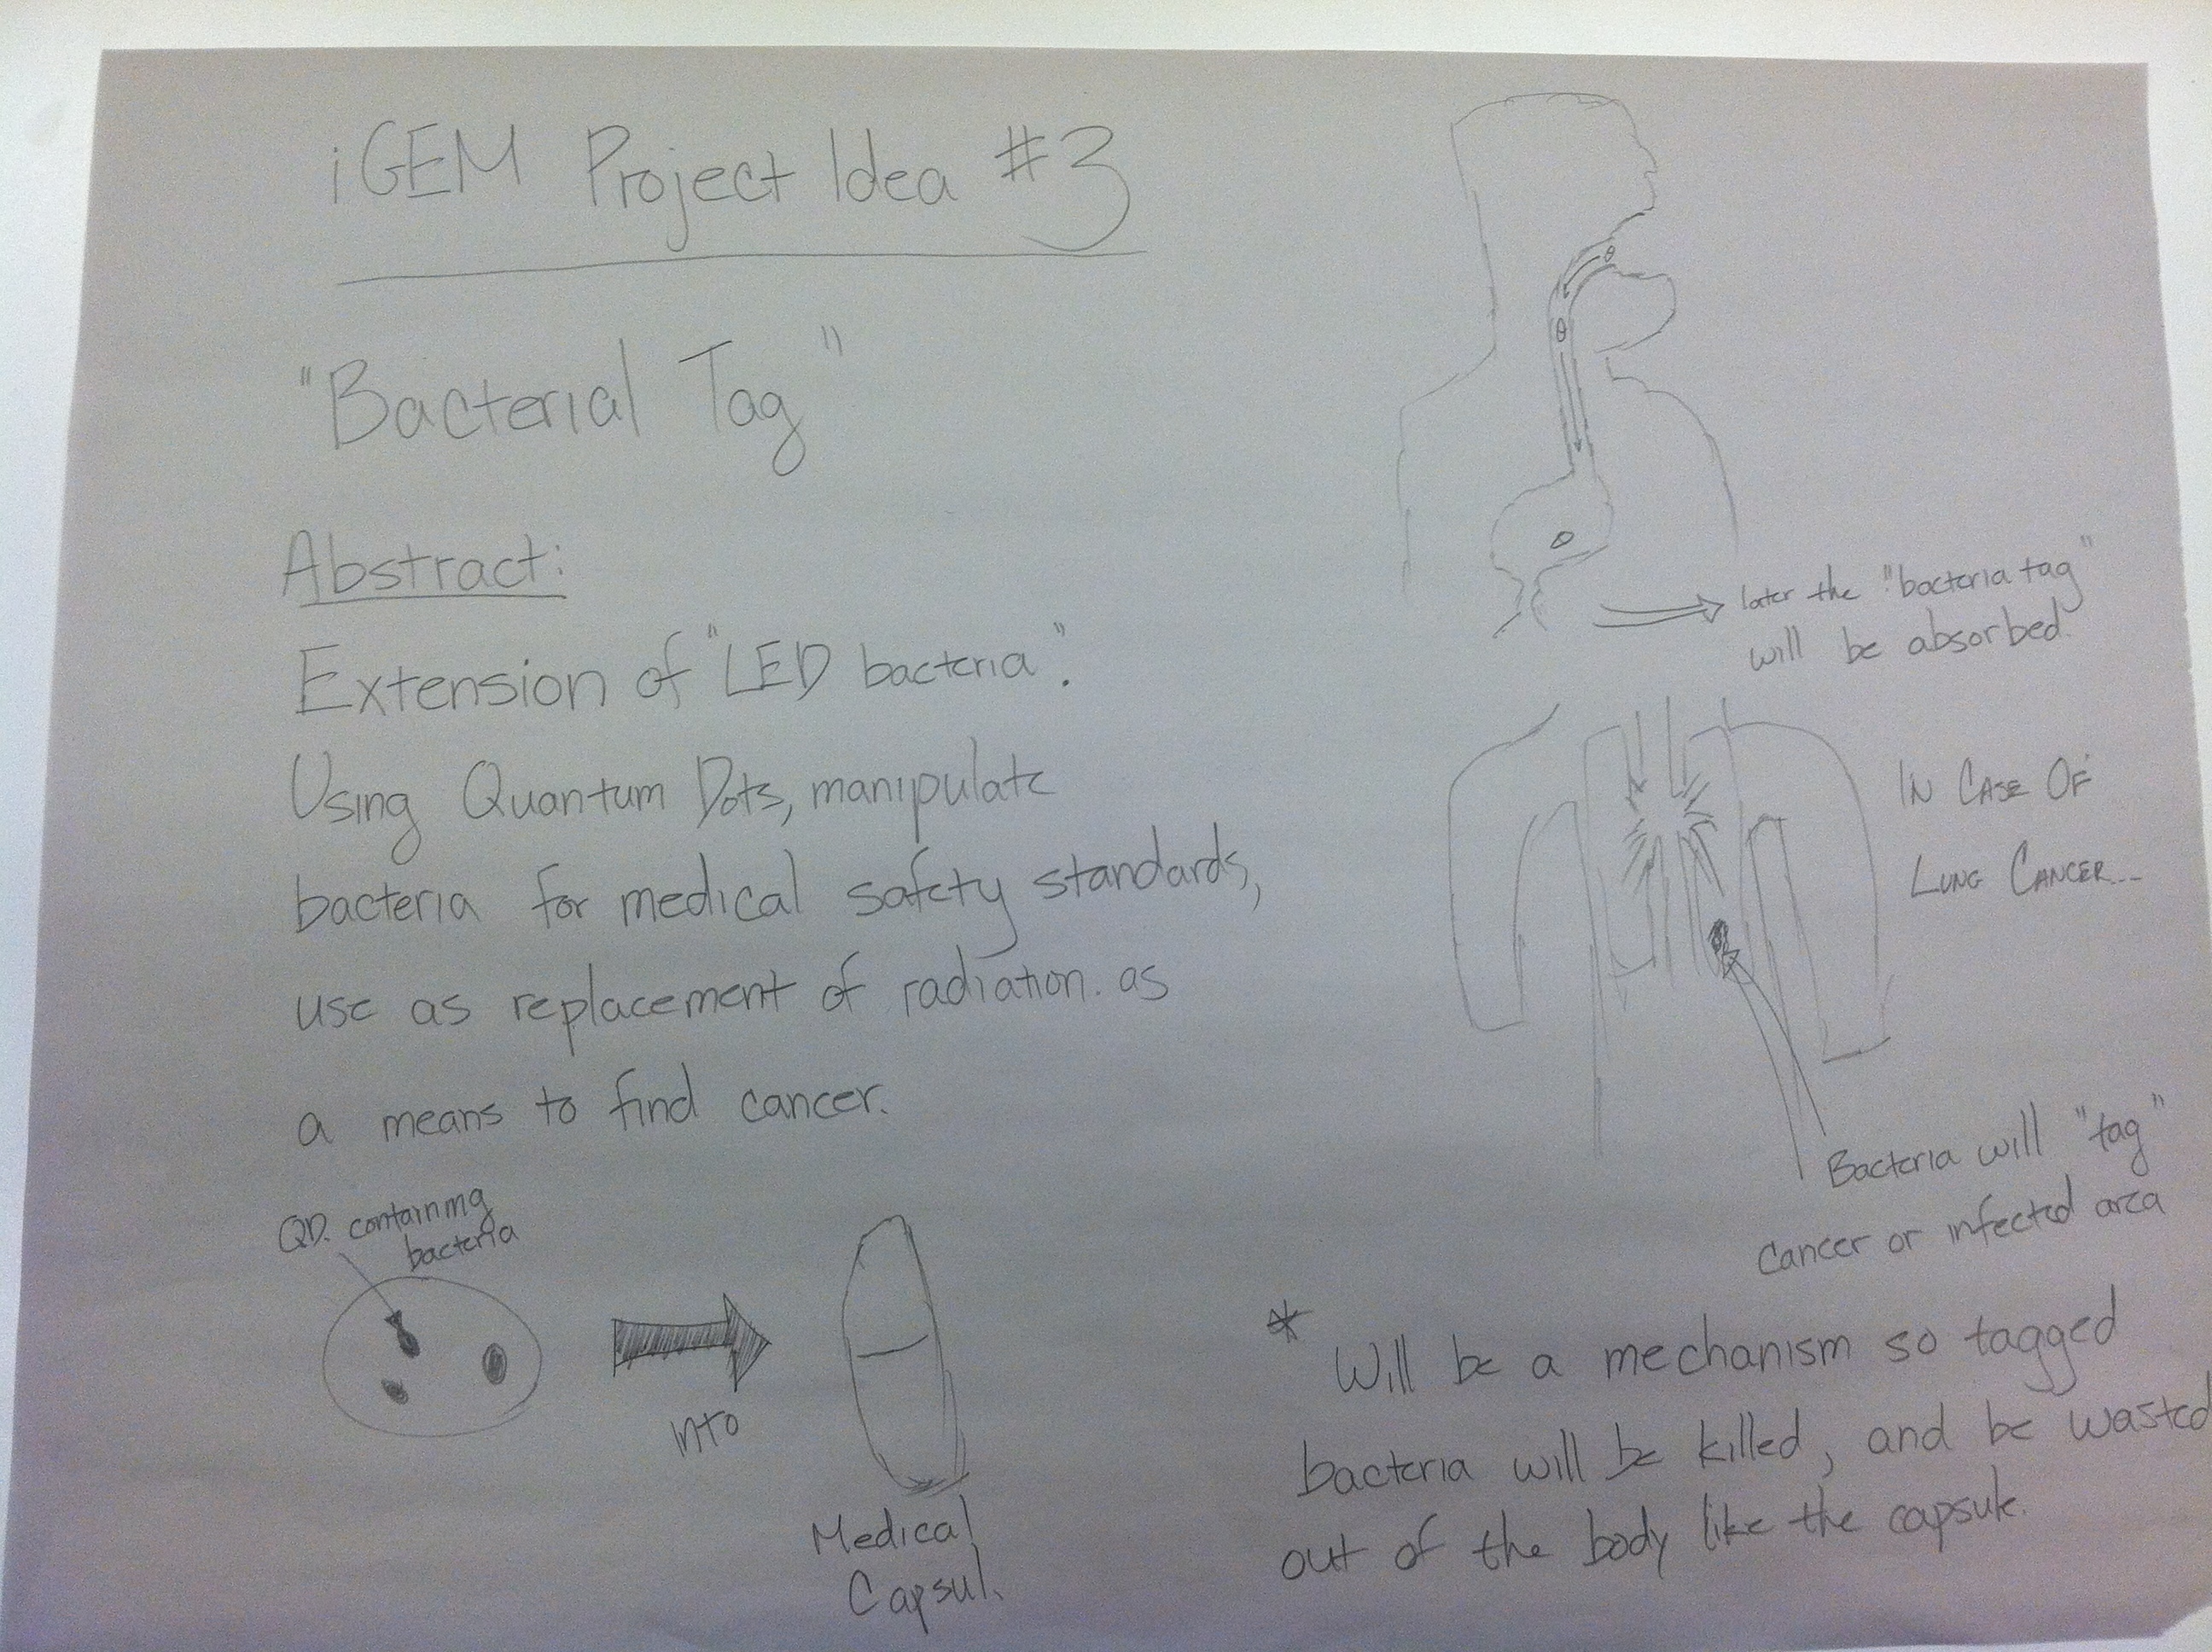 iGEM Project Idea #3
"Bacterial Tag"
Abstract:
Extension of "LED bacteria".
Using Quantum Dots, manipulate
bacteria for medical safety standards,
use as replacement of radiation. as
a means to find cancer.
QD. containing
bacteria
into
Medical
Capsul.
later the "bacteria tag"
will be absorbed.
IN CASE OF
LUNG CANCER...
Bacteria will "tag"
cancer or infected area
* Will be a mechanism so tagged
bacteria will be killed, and be wasted
out of the body like the capsule.